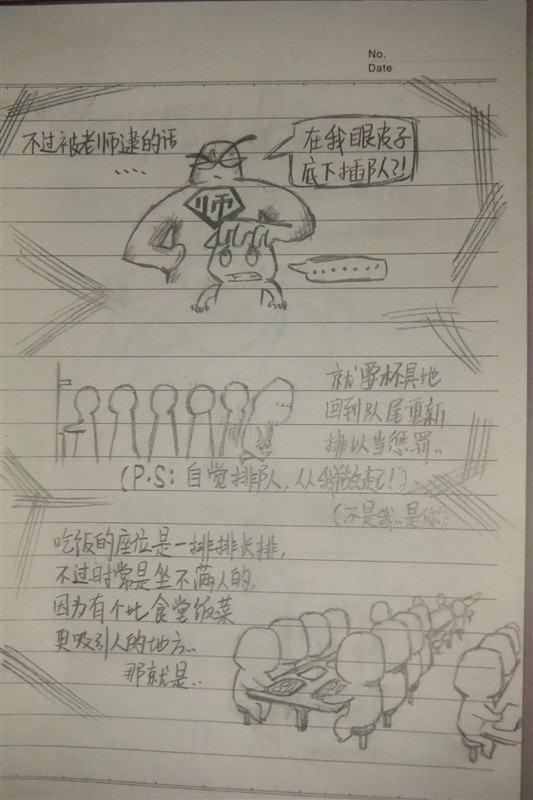 No.
Date
不过被老师逮的话
....
在我眼皮子
底下插队?!
师
.......
就要杯具地
回到队尾重新
排以当惩罚..
(P.S: 自觉排队, 从我做起!)
(不是我..是你)
吃饭的座位是一排排长排,
不过时常是坐不满人的,
因为有个比食堂饭菜
更吸引人的地方..
那就是..